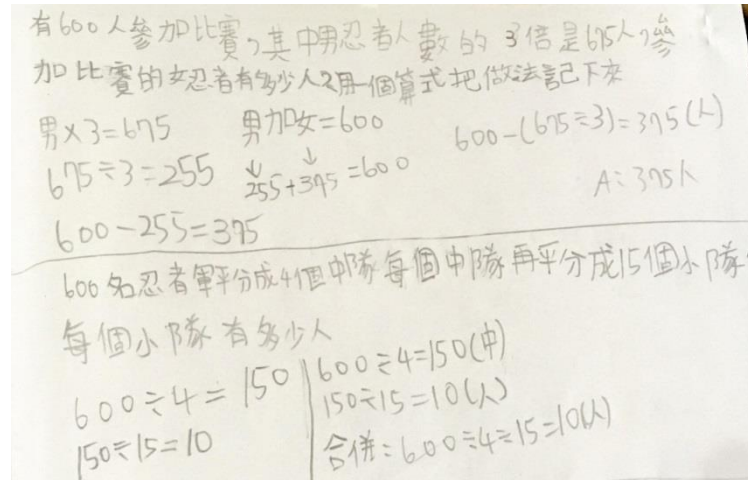 有600人參加比賽,其中男忍者人數的3倍是675人,參
加比賽的女忍者有多少人?用一個算式把做法記下來
男×3=675
675÷3=255
600-255=375
男加女=600
↓ ↓
255+375=600
600-(675÷3)=375(人)
A:375人
600名忍者軍平分成4個中隊每個中隊再平分成15個小隊
每個小隊有多少人
600÷4=150
150÷15=10
600÷4=150(中)
150÷15=10(人)
合併:600÷4÷15=10(人)